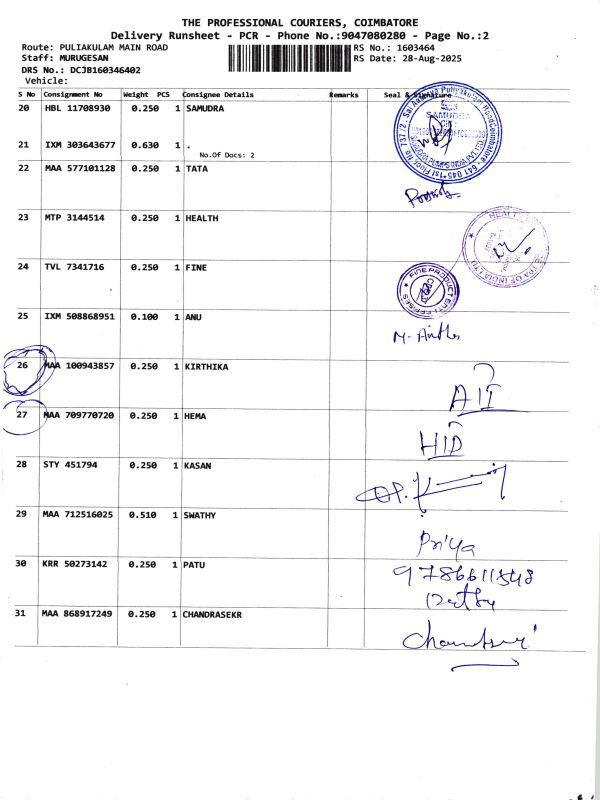 THE PROFESSIONAL COURIERS, COIMBATORE
Delivery Runsheet - PCR - Phone No.:9047080280 - Page No.:2
Route: PULIAKULAM MAIN ROAD RS No.: 1603464
Staff: MURUGESAN RS Date: 28-Aug-2025
DRS No.: DCJB160346402
Vehicle:
S No Consignment No Weight PCS Consignee Details Remarks Seal & Signature
20 HBL 11708930 0.250 1 SAMUDRA
SAMUDRA
21 IXM 303643677 0.630 1 .
No.Of Docs: 2
22 MAA 577101128 0.250 1 TATA
23 MTP 3144514 0.250 1 HEALTH
24 TVL 7341716 0.250 1 FINE
25 IXM 508868951 0.100 1 ANU
26 MAA 100943857 0.250 1 KIRTHIKA
27 MAA 709770720 0.250 1 HEMA
HID
28 STY 451794 0.250 1 KASAN
29 MAA 712516025 0.510 1 SWATHY
Priya
30 KRR 50273142 0.250 1 PATU
31 MAA 868917249 0.250 1 CHANDRASEKR